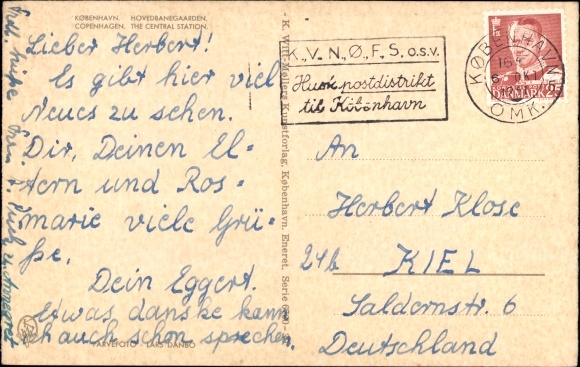 KØBENHAVN. HOVEDBANEGAARDEN.
COPENHAGEN. THE CENTRAL STATION.
Lieber Herbert!
Es gibt hier viel
Neues zu sehen.
Dir, Deinen El-
tern und Ros-
marie viele Grü-
ße.
Dein Eggert.
Etwas danske kann
ich auch schon sprechen.
FARVEFOTO: LARS DANBO
- K. Witt-Møllers Kunstforlag, København. Eneret. Serie
K.V.N.Ø.F.S. o.s.v.
Husk postdistrikt
til København
KØBENHAVN
OMK.
DANMARK
An
Herbert Klose
24b KIEL
Saldernstr. 6
Deutschland